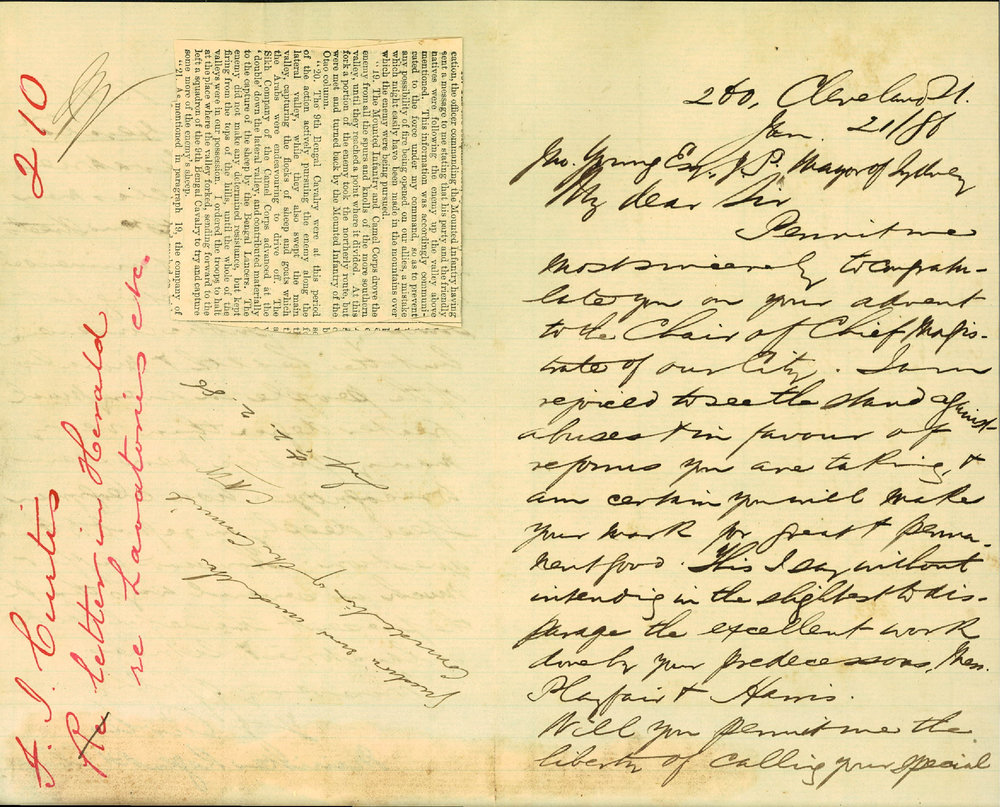 210
F. J. Curtis
Re letter in Herald
re Lavatories etc.
cation, the officer commanding the Mounted Infantry having
sent a message to me stating that his party and the friendly
natives were following the enemy up the valley above
mentioned. This information was accordingly communi-
cated to the force under my command, so as to prevent
any possibility of fire being opened on our allies, a mistake
which might easily have been made in the mountains over
which the enemy were being pursued.
"19. The Mounted Infantry and Camel Corps drove the
enemy from all the spurs and knolls of the more southern
valley, until they reached a point where it divided. At this
fork a portion of the enemy took the northerly route, but
were met and turned back by the Mounted Infantry of the
Otao column.
"20. The 9th Bengal Cavalry were at this period
of the action actively pursuing the enemy along the
lateral valley, while they also swept the main
valley, capturing the flocks of sheep and goats which
the Arabs were endeavouring to drive off. The
Sikh Company of the Camel Corps advanced at the
'double' down the lateral valley, and contributed materially
to the capture of the sheep by the Bengal Lancers. The
enemy did not make any determined resistance, but kept
firing from the tops of the hills, until the whole of the
valleys were in our possession. I ordered the troops to halt
at the place where the valley forked, sending forward to the
left a squadron of the 9th Bengal Cavalry to try and capture
some more of the enemy's sheep.
"21. As mentioned in paragraph 19, the company of
now under the
Consideration of the Committee
200, Cleveland St.
Jan. 21/86
Jno. Young Esq. J.P. Mayor of Sydney
My dear Sir
Permit me
most sincerely to congratu-
late you on your advent
to the Chair of Chief Magis-
trate of our City. I am
rejoiced to see the stand against
abuses & in favour of
reforms you are taking, &
am certain you will make
your mark for great & perma-
nent good. This I say without
intending in the slightest to dis-
parage the excellent work
done by your predecessors, Mess.
Playfair & Harris.
Will you permit me the
liberty of calling your special